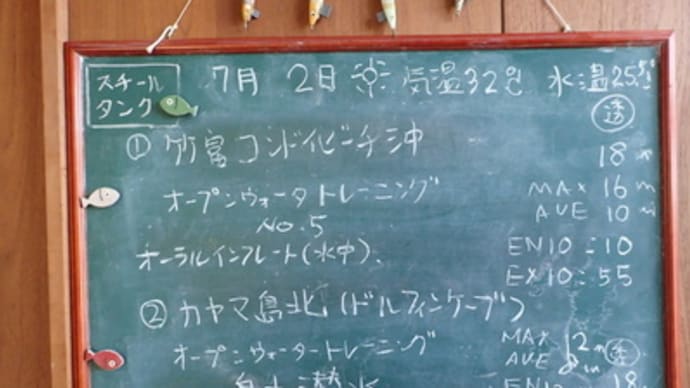 スチール
タンク
7月 2日 ☼ 気温32℃ 水温25.5℃
透
① 竹富コンドイビーチ沖 18m
オープンウォータトレーニング MAX 16m
No.5 AVE 10m
オーラルインフレート(水中) EN10:10
EX10:55
② カヤマ島北(ドルフィンケーブ)
オープンウォータートレーニング MAX 12m 透
AVE 8m